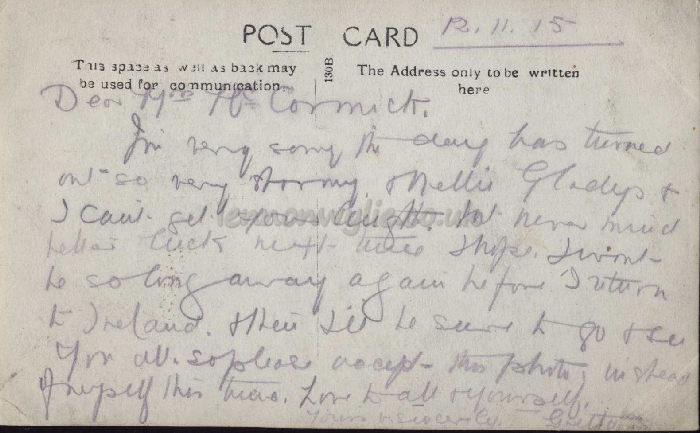 POST CARD 12.11.15
This space as well as back may
be used for communication
130B
The Address only to be written
here
Dear Mrs McCormick.
I'm very sorry the day has turned
out so very stormy, & Nellie Gladys &
I can't get to you tonight. but never mind
better luck next time I hope. I wont
be so long away again before I return
to Ireland. & then I'll be sure to go & see
you all. so please accept this photo, instead
of myself this time. Love to all & yourself.
Yours sincerely